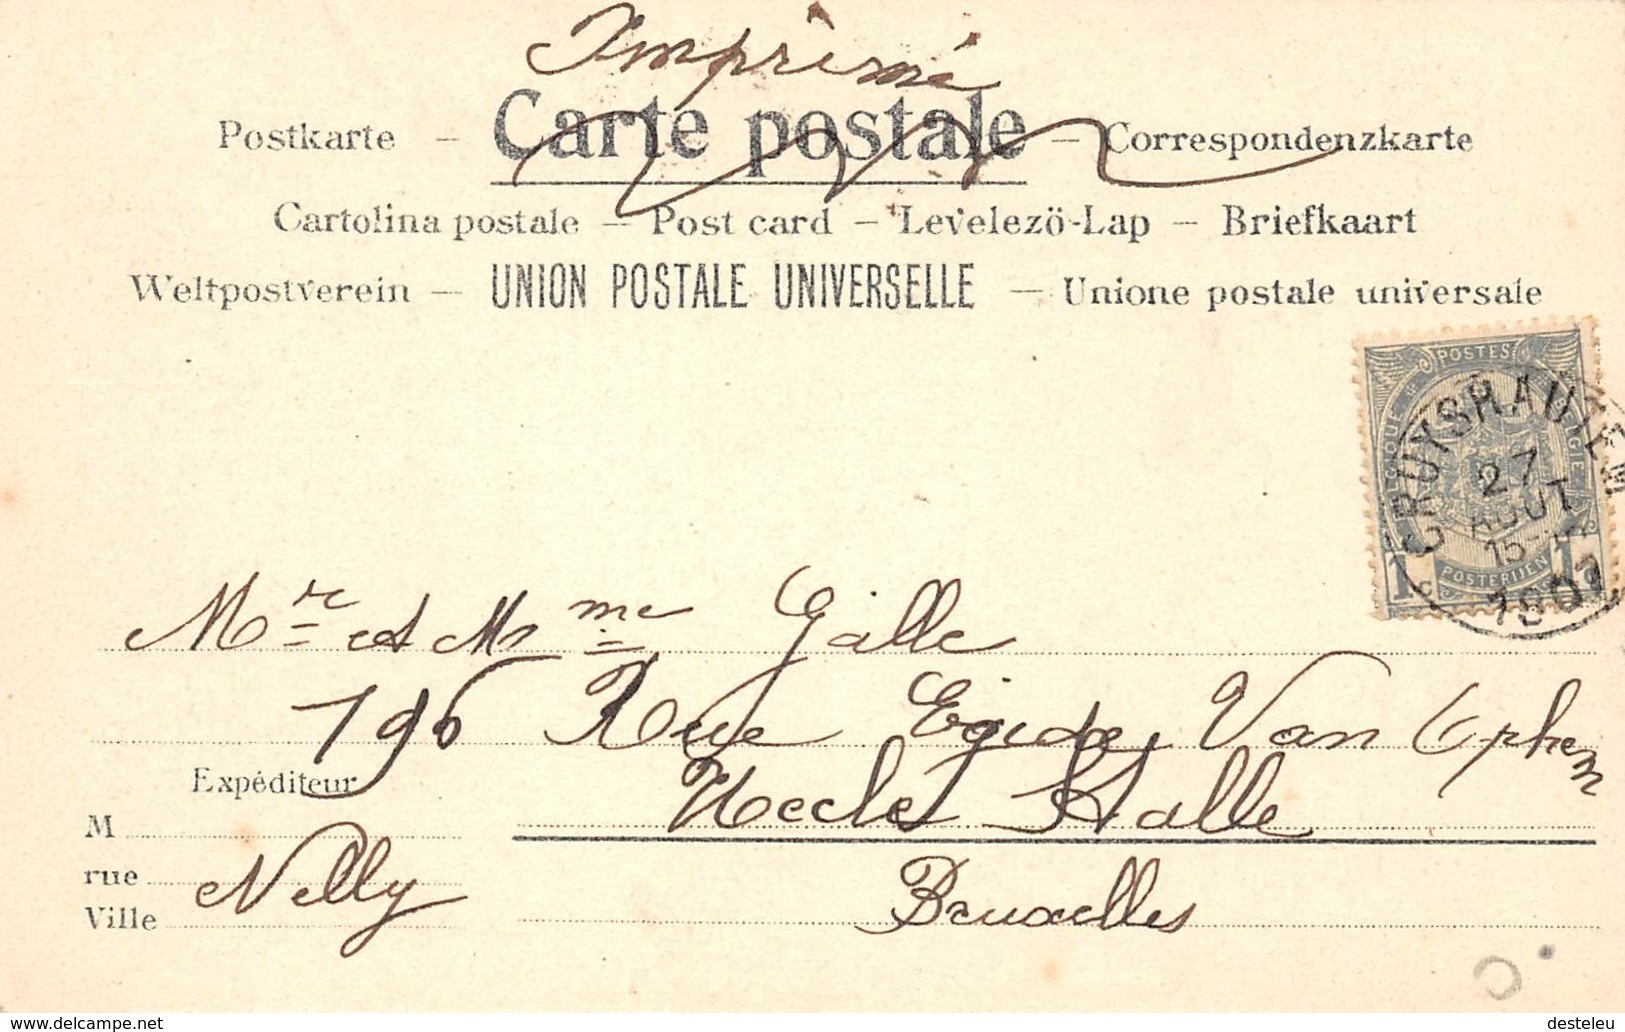 Imprimé
Postkarte – Carte postale – Correspondenzkarte
Cartolina postale – Post card – Levelezö-Lap – Briefkaart
Weltpostverein – UNION POSTALE UNIVERSELLE – Unione postale universale
POSTES
BELGIQUE BELGIE
CRUYSHAUTEM
27
AOUT
15-
1907
1c POSTERIJEN 1c
Mr et Mme Galle
196 Rue Egide Van Ophem
Uccle Stalle
Bruxelles
Expéditeur
M
rue
Nelly
Ville
www.delcampe.net
desteleu